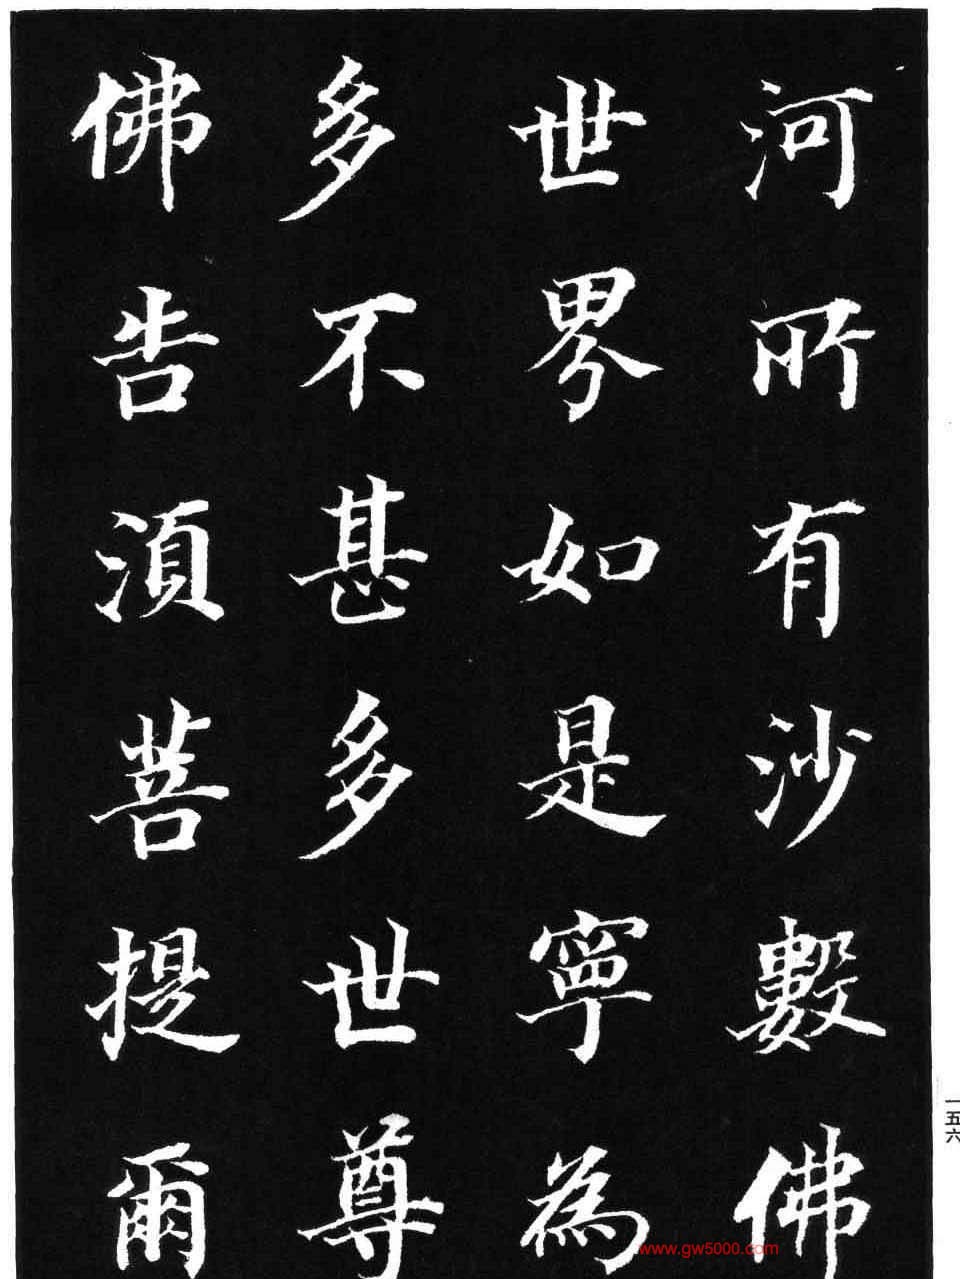 河所有沙數佛
世界如是寧為
多不甚多世尊
佛告須菩提爾
一五六
www.gw5000.com